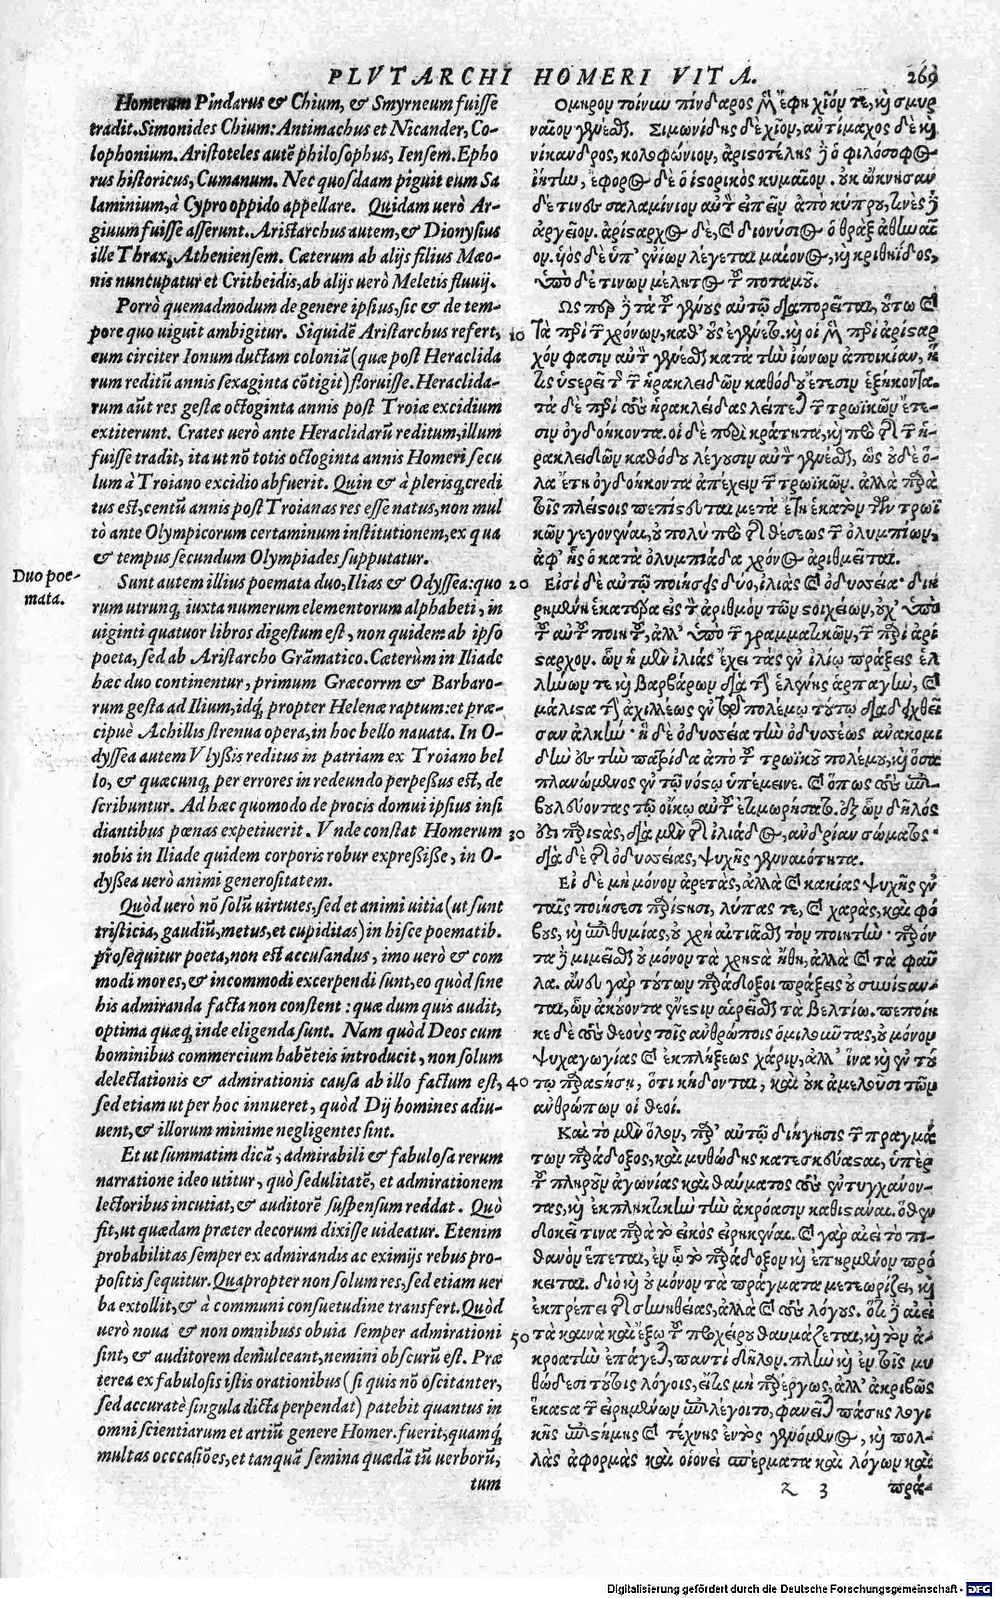 PLVTARCHI HOMERI VITA. 269
Homerum Pindarus & Chium, & Smyrneum fuisse
tradit. Simonides Chium: Antimachus et Nicander, Co-
lophonium. Aristoteles autē philosophus, Iensem. Epho
rus historicus, Cumanum. Nec quosdaam piguit eum Sa
laminium, à Cypro oppido appellare. Quidam uerò Ar-
giuum fuisse asserunt. Aristarchus autem, & Dionysius
ille Thrax, Atheniensem. Cæterum ab alijs filius Mæo-
nis nuncupatur et Critheidis, ab alijs uerò Meletis fluuij.
Porrò quemadmodum de genere ipsius, sic & de tem-
pore quo uiguit ambigitur. Siquidē Aristarchus refert,
eum circiter Ionum ductam coloniā (quæ post Heraclida
rum reditū annis sexaginta cōtigit) floruisse. Heraclida-
rum aūt res gestæ octoginta annis post Troiæ excidium
extiterunt. Crates uerò ante Heraclidarū reditum, illum
fuisse tradit, ita ut nō totis octoginta annis Homeri secu
lum à Troiano excidio abfuerit. Quin & à plerisq; credi
tus est, centū annis post Troianas res esse natus, non mul
tò ante Olympicorum certaminum institutionem, ex qua
& tempus secundum Olympiades supputatur.
Duo poe-
mata.
Sunt autem illius poemata duo, Ilias & Odyssea: quo
rum utrunq; iuxta numerum elementorum alphabeti, in
uiginti quatuor libros digestum est, non quidem ab ipso
poeta, sed ab Aristarcho Grāmatico. Cæterùm in Iliade
hæc duo continentur, primum Græcorrm & Barbaro-
rum gesta ad Ilium, idq; propter Helenæ raptum: et præ-
cipuè Achillis strenua opera, in hoc bello nauata. In O-
dyssea autem Vlyßis reditus in patriam ex Troiano bel
lo, & quæcunq; per errores in redeundo perpeßus est, de
scribuntur. Ad hæc quomodo de procis domui ipsius insi
diantibus pœnas expetiuerit. Vnde constat Homerum
nobis in Iliade quidem corporis robur expreßiße, in O-
dyßea uerò animi generositatem.
Quòd uerò nō solū uirtutes, sed et animi uitia (ut sunt
tristicia, gaudiū, metus, et cupiditas) in hisce poematib.
prosequitur poeta, non est accusandus, imo uerò & com
modi mores, & incommodi excerpendi sunt, eo quòd sine
his admiranda facta non constent: quæ dum quis audit,
optima quæq; inde eligenda sunt. Nam quòd Deos cum
hominibus commercium habēteis introducit, non solum
delectationis & admirationis causa ab illo factum est,
sed etiam ut per hoc innueret, quòd Dij homines adiu-
uent, & illorum minime negligentes sint.
Et ut summatim dicā, admirabili & fabulosa rerum
narratione ideo utitur, quò sedulitatē, et admirationem
lectoribus incutiat, & auditorē suspensum reddat. Quò
fit, ut quædam præter decorum dixisse uideatur. Etenim
probabilitas semper ex admirandis ac eximijs rebus pro-
positis sequitur. Quapropter non solum res, sed etiam uer
ba extollit, & à communi consuetudine transfert. Quòd
uerò noua & non omnibuss obuia semper admirationi
sint, & auditorem demulceant, nemini obscurū est. Præ
terea ex fabulosis istis orationibus (si quis nō oscitanter,
sed accuratè singula dicta perpendat) patebit quantus in
omni scientiarum et artiū genere Homer. fuerit, quamq;
multas occcasiōes, et tanquā semina quædā tū uerborū,
tum
10
20
30
40
50
Ομηρον τοίνυν πίνδαρος μὲν ἔφη χῖόν τε, καὶ σμυρ
ναῖον γενέσθαι. Σιμωνίδης δὲ χῖον, αὐτίμαχος δὲ καὶ
νίκανδρος, κολοφώνιον, ἀριστοτέλης δὲ ὁ φιλόσοφος
ἰήτην, ἔφορος δὲ ὁ ἱστορικὸς κυμαῖον. οὐκ ὤκνησαν
δέ τινες σαλαμίνιον αὐτὸν εἰπεῖν ἀπὸ κύπρου, τινὲς δὲ
ἀργεῖον. ἀρίσταρχος δὲ, καὶ διονύσιος ὁ θρᾷξ ἀθηναῖ
ον. υἱὸς δὲ ὑπ' ἐνίων λέγεται μαίονος, καὶ κριθηΐδος,
ὑπὸ δέ τινων μέλητος τοῦ ποταμοῦ.
Ως περ δὲ τὰ τοῦ γένους αὐτῷ διαπορεῖται, οὕτω καὶ
Τὰ περὶ τῶν χρόνων, καθ' οὓς ἐγένετο. καὶ οἱ μὲν περὶ ἀρίσταρ
χόν φασιν αὐτὸν γενέσθαι κατὰ τὴν ἰώνων ἀποικίαν, ἥ
τις ὑστερεῖ τῆς τῶν ἡρακλειδῶν καθόδου ἔτεσιν ἑξήκοντα.
τὰ δὲ περὶ τοὺς ἡρακλείδας λείπεται τῶν τρωϊκῶν ἔτε-
σιν ὀγδοήκοντα. οἱ δὲ περὶ κράτητα, καὶ πρὸ τῆς τῶν ἡ-
ρακλειδῶν καθόδου λέγουσιν αὐτὸν γενέσθαι, ὡς οὐδὲ ὅ-
λα ἔτη ὀγδοήκοντα ἀπέχειν τῶν τρωϊκῶν. ἀλλὰ παρὰ
τοῖς πλείστοις πεπίστευται μετὰ ἔτη ἑκατὸν τῶν τρωϊ
κῶν γεγονέναι, οὐ πολὺ πρὸ τῆς θέσεως τῶν ὀλυμπίων,
ἀφ' ἧς ὁ κατὰ ὀλυμπιάδα χρόνος ἀριθμεῖται.
Εἰσὶ δὲ αὐτῷ ποιήσεις δύο, ἰλιὰς καὶ ὀδυσσεία· διῃ
ρημένη ἑκατέρα εἰς τὸν ἀριθμὸν τῶν στοιχείων, οὐχ' ὑπὸ
τοῦ αὐτοῦ ποιητοῦ, ἀλλ' ὑπὸ τῶν γραμματικῶν, τῶν περὶ ἀρί
σταρχον. ὧν ἡ μὲν ἰλιὰς ἔχει τὰς ἐν ἰλίῳ πράξεις ἑλ
λήνων τε καὶ βαρβάρων διὰ τὴν ἑλένης ἁρπαγὴν, καὶ
μάλιστα τὴν ἀχιλλέως ἐν τῷ πολέμῳ τούτῳ διαδειχθεῖ
σαν ἀλκήν· ἡ δὲ ὀδυσσεία τὴν ὀδυσσέως ἀνακομι
δὴν εἰς τὴν πατρίδα ἀπὸ τοῦ τρωϊκοῦ πολέμου, καὶ ὅσα
πλανώμενος ἐν τῷ νόστῳ ὑπέμεινε. καὶ ὅπως τοὺς ἐπι-
βουλεύοντας τῷ οἴκῳ αὐτοῦ ἐτιμωρήσατο. ἐξ ὧν δῆλός
ἐστι παριστὰς, διὰ μὲν τῆς ἰλιάδος, ἀνδρίαν σώματος·
διὰ δὲ τῆς ὀδυσσείας, ψυχῆς γενναιότητα.
Εἰ δὲ μὴ μόνον ἀρετὰς, ἀλλὰ καὶ κακίας ψυχῆς ἐν
ταῖς ποιήσεσι παρίστησι, λύπας τε, καὶ χαρὰς, καὶ φό
βους, καὶ ἐπιθυμίας, οὐ χρὴ αἰτιᾶσθαι τὸν ποιητήν· πρέπον
τα δὲ μιμεῖσθαι οὐ μόνον τὰ χρηστὰ ἤθη, ἀλλὰ καὶ τὰ φαῦ
λα. ἄνευ γὰρ τούτων παράδοξοι πράξεις οὐ συνίσταν-
ται, ὧν ἀκούοντα ἔνεστιν αἱρεῖσθαι τὰ βελτίω. πεποίη
κε δὲ τοὺς θεοὺς τοῖς ἀνθρώποις ὁμιλοῦντας, οὐ μόνον
ψυχαγωγίας καὶ ἐκπλήξεως χάριν, ἀλλ' ἵνα καὶ ἐν τού
τῳ παραστήσῃ, ὅτι κήδονται, καὶ οὐκ ἀμελοῦσι τῶν
ἀνθρώπων οἱ θεοί.
Καὶ τὸ μὲν ὅλον, παρ' αὐτῷ διήγησις τῶν πραγμά
των παράδοξος, καὶ μυθώδης κατεσκεύασται, ὑπὲρ
τοῦ πληροῦν ἀγωνίας καὶ θαύματος τοὺς ἐντυγχάνον-
τας, καὶ ἐκπληκτικὴν τὴν ἀκρόασιν καθιστάναι. ὅθεν
δοκεῖ τινα παρὰ τὸ εἰκὸς εἰρηκέναι. καὶ γὰρ ἀεὶ τὸ πι-
θανὸν ἕπεται, ἐν ᾧ τὸ παράδοξον καὶ ἐπηρμένον πρό
κειται. διὸ καὶ οὐ μόνον τὰ πράγματα μετεωρίζει, καὶ
ἐκτρέπει τῆς συνηθείας, ἀλλὰ καὶ τοὺς λόγους. ὅτι δὲ ἀεὶ
τὰ καινὰ καὶ ἔξω τοῦ προχείρου θαυμάζεται, καὶ τὸν ἀ-
κροατὴν ἐπάγεται, παντὶ δῆλον. πλὴν καὶ ἐν τοῖς μυ
θώδεσι τούτοις λόγοις, εἴ τις μὴ παρέργως, ἀλλ' ἀκριβῶς
ἕκαστα τῶν εἰρημένων ἐπιλέγοιτο, φανεῖται πάσης λογι
κῆς ἐπιστήμης καὶ τέχνης ἐντὸς γενόμενος, καὶ πολ-
λὰς ἀφορμὰς καὶ οἱονεὶ σπέρματα καὶ λόγων καὶ
z 3 πρά-
Digitalisierung gefördert durch die Deutsche Forschungsgemeinschaft - DFG